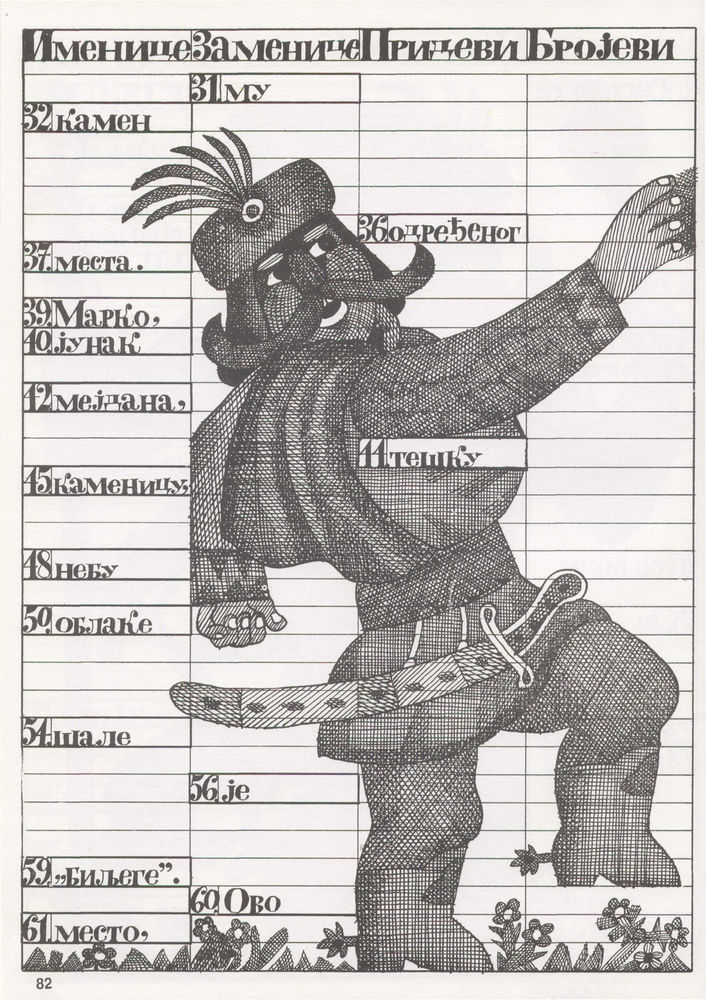 Именице Заменице Придеви Бројеви
31. му
32. камен
36. одређеног
37. места.
39. Марко,
40. јунак
42. мејдана,
44. тешку
45. каменицу,
48. небу
50. облаке
54. шале
56. је
59. „биљеге”.
60. Ово
61. место,
82